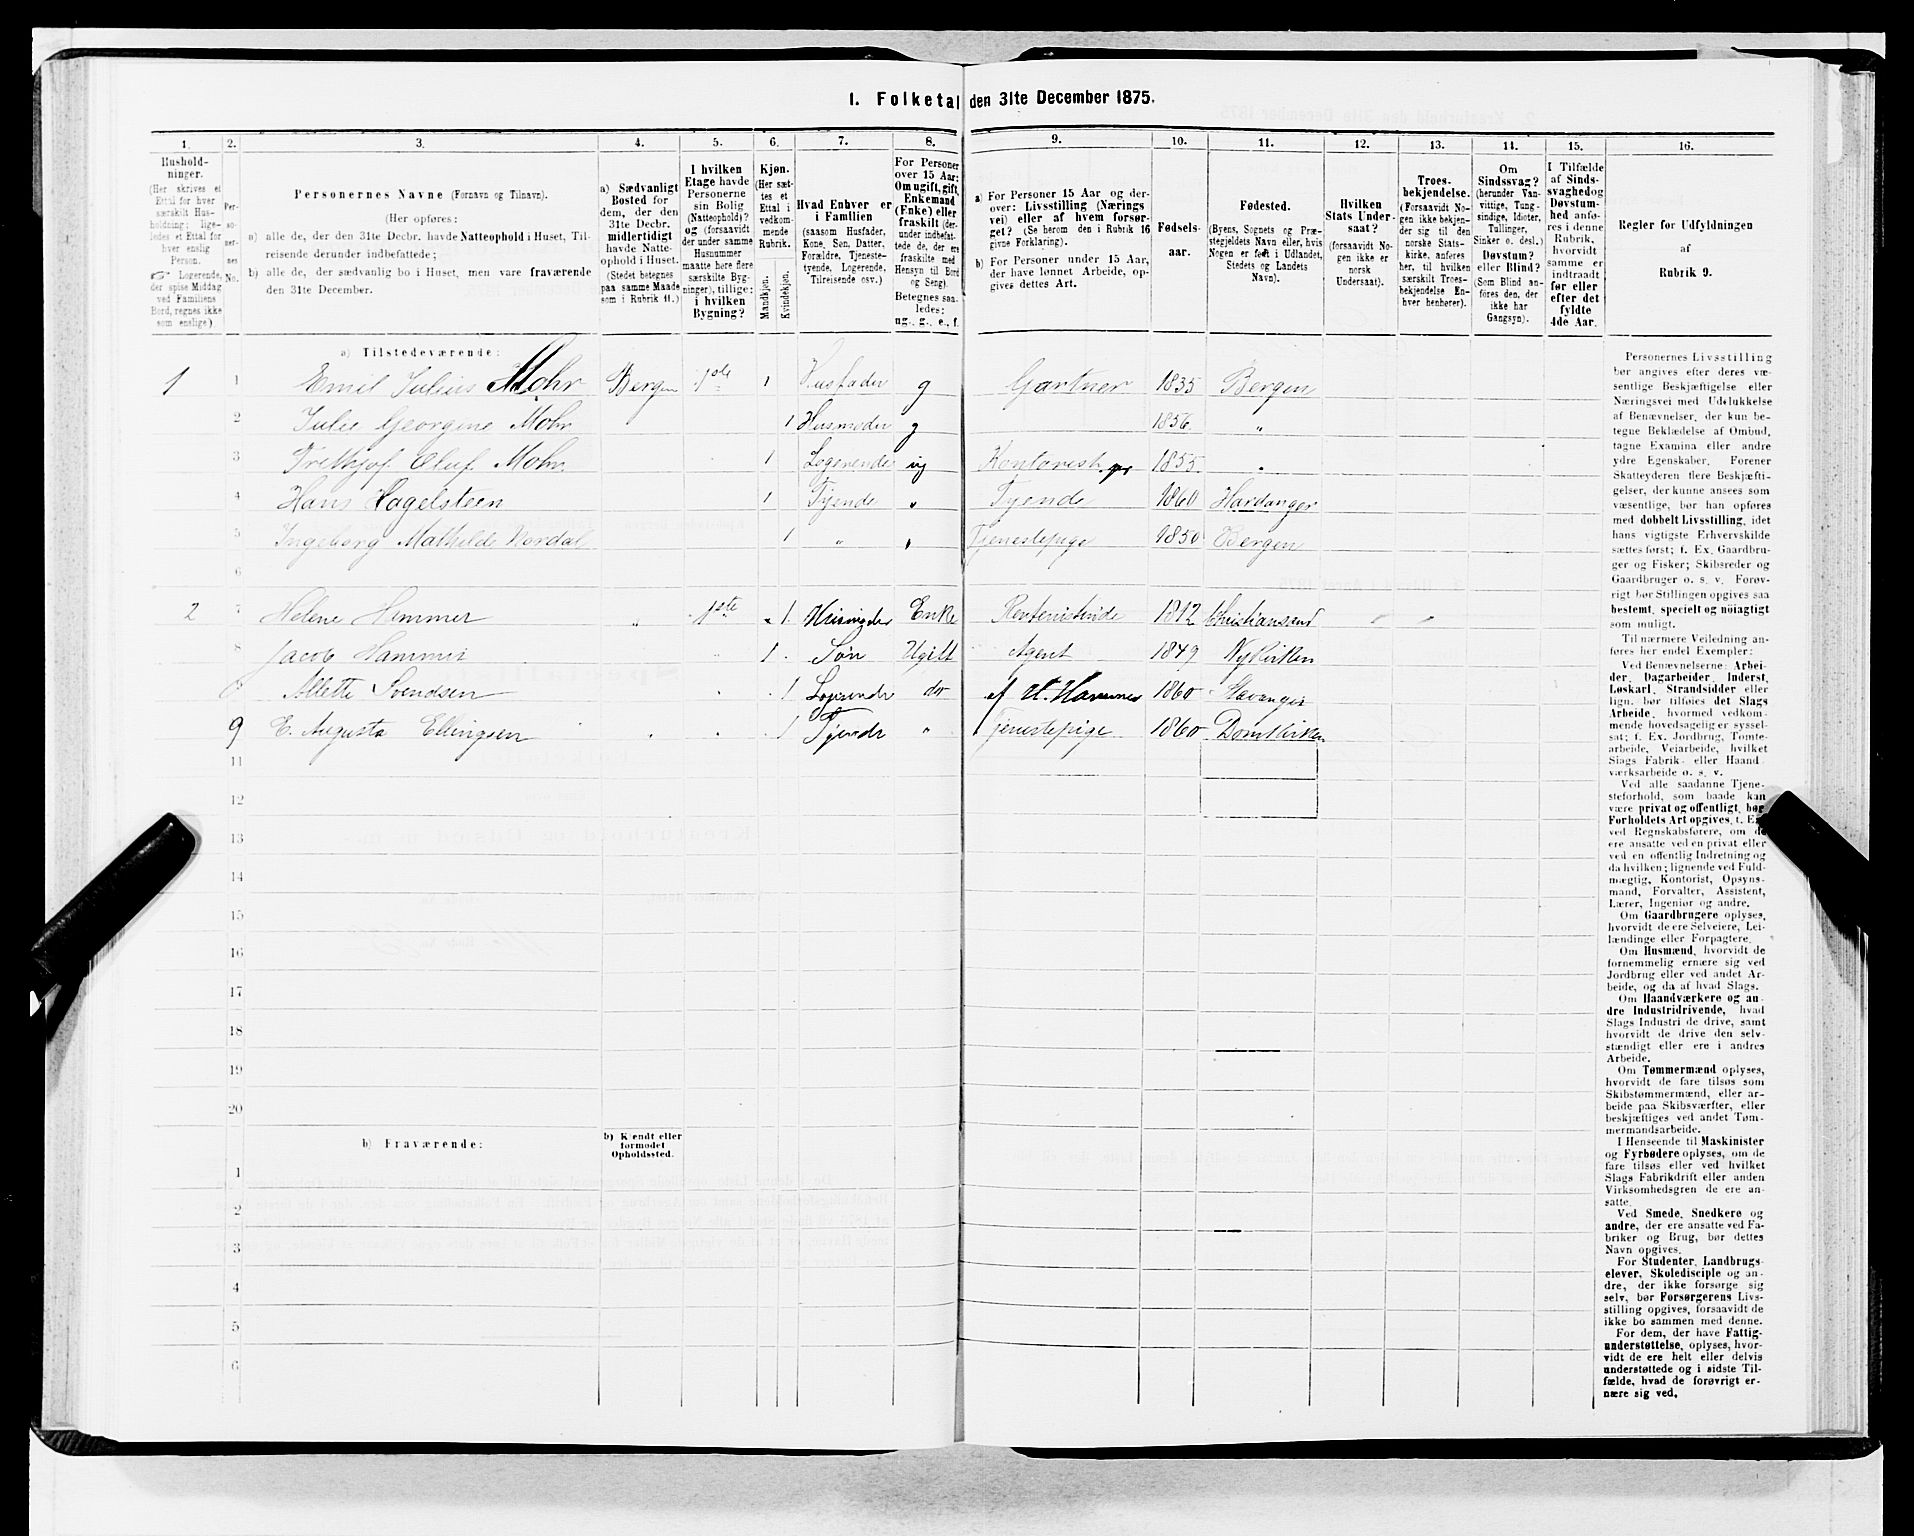 1. Folketal den 31te December 1875.
1. 2. 3. 4. 5. 6. 7. 8. 9. 10. 11. 12. 13. 14. 15. 16.
Hushold-
ninger.
(Her skrives et
Ettal for hver
særskilt Hus-
holdning; lige-
ledes et Ettal for
hver enslig
Person.
☞ Logerende,
der spise Middag
ved Familiens
Bord, regnes ikke
som enslige.)
Per-
so-
ner-
nes
No.
Personernes Navne (Fornavn og Tilnavn).
(Her opføres:
a) alle de, der den 31te Decbr. havde Natteophold i Huset, Til-
reisende derunder indbefattede;
b) alle de, der sædvanlig bo i Huset, men vare fraværende
den 31te December.
a) Sædvanligt
Bosted for
dem, der den
31te Decbr.
midlertidigt
havde Natte-
ophold i Huset.
(Stedet betegnes
paa samme Maade
som i Rubrik 11.)
I hvilken
Etage havde
Personerne
sin Bolig
(Natteophold)?
og (forsaavidt
der under samme
Husnummer
maatte høre flere
særskilte Byg-
ninger), tillige:
i hvilken
Bygning?
Kjøn.
(Her sæt-
tes et
Ettal i
vedkom-
mende
Rubrik.
Mandkjøn.
Kvindekjøn.
Hvad Enhver er
i Familien
(saasom Husfader,
Kone, Søn, Datter,
Forældre, Tjeneste-
tyende, Logerende,
Tilreisende osv.)
For Personer
over 15 Aar:
Om ugift, gift,
Enkemand
(Enke) eller
fraskilt (der-
under indbefat-
tede de, der ere
fraskilte med
Hensyn til Bord
og Seng).
Betegnes saa-
ledes:
ug., g., e., f.
a) For Personer 15 Aar og der-
over: Livsstilling (Nærings
vei) eller af hvem forsør-
get? (Se herom den i Rubrik 16
givne Forklaring).
b) For Personer under 15 Aar,
der have lønnet Arbeide, op-
gives dettes Art.
Fødsels-
aar.
Fødested.
(Byens, Sognets og Præ-
stegjeldets Navn eller, hvis
Nogen er født i Udlandet,
Stedets og Landets
Navn).
Hvilken
Stats Under-
saat?
(forsaavidt No-
gen ikke er
norsk
Undersaat).
Troes-
bekjendelse.
(Forsaavidt No-
gen ikke bekjen-
der sig til den
norske Stats-
kirke, anføres
her, til hvilken
særskilt Troes-
bekjendelse En-
hver henhører).
Om
Sindssvag?
(herunder Van-
vittige, Tung-
sindige, Idioter,
Tullinger,
Sinker o. desl.)
Døvstum?
eller Blind?
(Som Blind an-
føres den, der
ikke har
Gangsyn).
I Tilfælde
af Sinds-
svaghed og
Døvstum-
hed anfø-
res i denne
Rubrik,
hvorvidt
samme er
indtraadt
før eller
efter det
fyldte
4de Aar.
Regler for Udfyldningen
af
Rubrik 9.
a) Tilstedeværende:
1 1 Emil Julius Mohr Bergen 1ste 1 Husfader g Gartner 1835 Bergen
2 Julie Georgine Mohr 1 Husmoder g 1856 "
3 Frithjof Oluf Mohr 1 Logerende ug 1855 "
4 Hans Hagelsteen 1 Tyende " Tyende 1860 Hardanger
5 Ingeborg Mathilde Nordal 1 " " Tjenestepige 1850 Bergen
6
2 7 Helene Hammer " 1ste " 1 Enke 1812 Christiansand " "
8 Jacob Hammer 1 Søn Ugift Agent 1849 Nykirken
Svendsen 1 Logerende do af H. Hammer 1860 Stavanger
9 E. Augusta Ellingsen 1 Tjende " Tjenestepige 1860 Domkirken
11
12
13
14
15
16
17
18
19
20
b) Fraværende:
b) Kjendt eller
formodet
Opholdssted.
1
2
3
4
5
6
Personernes Livsstilling
bør angives efter deres væ-
sentlige Beskjæftigelse eller
Næringsvei med Udelukkelse
af Benævnelser, der kun be-
tegne Beklædelse af Ombud,
tagne Examina eller andre
ydre Egenskaber. Forener
Skatteyderen flere Beskjæfti-
gelser, der kunne ansees som
væsentlige, bør han opføres
med dobbelt Livsstilling, idet
hans vigtigste Erhvervskilde
sættes først; f. Ex. Gaardbru-
ger og Fisker; Skibsreder og
Gaardbruger o. s. v. Forøv-
rigt bør Stillingen opgives saa
bestemt, specielt og nøiagtigt
som muligt.
Til nærmere Veiledning an-
føres her endel Exempler:
Ved Benævnelserne: Arbei-
der, Dagarbeider, Inderst,
Løskarl, Strandsidder eller
lign. bør tilføies det Slags
Arbeide, hvormed vedkom-
mende hovedsagelig er syssel-
sat; f. Ex. Jordbrug, Tomte-
arbeide, Veiarbeide, hvilket
Slags Fabrik- eller Haand
værksarbeide o. s. v.
Ved alle saadanne Tjene-
steforhold, som baade kan
være privat og offentligt, bør
Forholdets Art opgives, t. Ex.
ved Regnskabsførere, om de
ere ansatte ved en privat eller
ved en offentlig Indretning og
da hvilken; lignende ved Fuld-
mægtig, Kontorist, Opsyns-
mand, Forvalter, Assistent,
Lærer, Ingeniør og andre.
Om Gaardbrugere oplyses,
hvorvidt de ere Selveiere, Lei-
lændinge eller Forpagtere.
Om Husmænd, hvorvidt de
fornemmelig ernære sig ved
Jordbrug eller ved andet Ar-
beide, og da af hvad Slags.
Om Haandværkere og an-
dre Industridrivende, hvad
Slags Industri de drive, samt
hvorvidt de drive den selv-
stændigt eller ere i andres
Arbeide.
Om Tømmermænd oplyses,
hvorvidt de fare tilsøs som
Skibstømmermænd, eller ar-
beide paa Skibsværfter, eller
beskjæftiges ved andet Tøm-
mermandsarbeide.
I Henseende til Maskinister
og Fyrbødere oplyses, om de
fare tilsøs eller ved hvilket
Slags Fabrikdrift eller anden
Virksomhedsgren de ere an-
satte.
Ved Smede, Snedkere og
andre, der ere ansatte ved Fa-
briker og Brug, bør dettes
Navn opgives.
For Studenter, Landbrugs-
elever, Skoledisciple og an-
dre, der ikke forsørge sig
selv, bør Forsørgerens Livs-
stilling opgives, forsaavidt de
ikke bo sammen med denne.
For dem, der have Fattig-
understøttelse, oplyses, hvor-
vidt de ere helt eller delvis
understøttede og i sidste Til-
fælde, hvad de forøvrigt er-
nære sig ved.